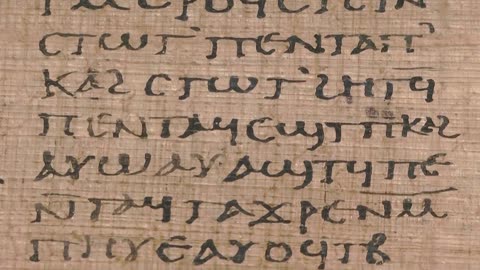 ⲥⲧⲱⲧ ⲡⲉⲛⲧⲁⲡ
ⲕⲁϩ ⲥⲧⲱⲧ ϩⲏⲧϥ
ⲡⲉⲛⲧⲁϥⲉϣⲧ ⲡⲕⲁϩ
ⲁⲩⲱ ⲁⲩⲁϣⲧϥ ⲡⲉ
ⲛⲧⲁϥⲧⲁϫⲣⲉ ⲛⲙ
ⲡⲏⲩⲉ ⲁⲩⲟϥⲧⲃ